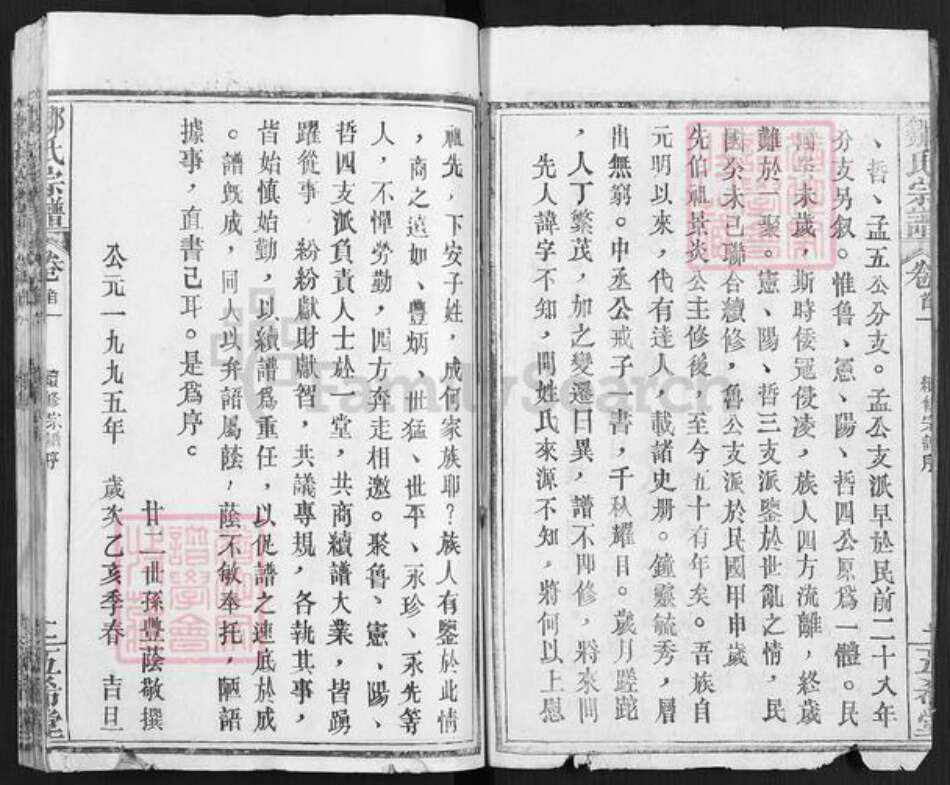 、哲、孟五公分支。孟公支派早於民前二十八年
分支另叙。惟魯、憲、陽、哲四公原爲一體。民
國癸未歲，斯時倭寇侵凌，族人四方流離，終歲
難於一聚。憲、陽、哲三支派鑒於世亂之情，民
國癸未已聯合續修，魯公支派於民國甲申歲
先伯祖景炎公主修後，至今五十有年矣。吾族自
元明以來，代有達人，載諸史册。鐘靈毓秀，層
出無窮。中丞公戒子一書，千秋耀目。歲月蹉跎
，人丁繁茂，加之變遷日異，譜不即修，將來問
先人諱字不知，問姓氏來源不知，將何以上慰
鄒氏宗譜
卷首一
續修宗譜序
二
五希堂
祖先，下安子姓，成何家族耶？族人有鑒於此情
，商之遠如、豐炳、世猛、世平、永珍、永先等
人，不憚勞勤，四方奔走相邀。聚魯、憲、陽、
哲四支派負責人士於一堂，共商續譜大業，皆踴
躍從事，紛紛獻財獻智，共議專規，各執其事，
皆始慎始勤，以續譜爲重任，以促譜之速底於成
。譜既成，同人以弁語屬蔭，蔭不敏奉托，陋語
據事，直書己耳。是爲序。
廿二世孫豐蔭敬撰
公元一九九五年 歲次乙亥季春 吉旦
鄒氏宗譜
卷首一
續修宗譜序
五希堂
FamilySearch